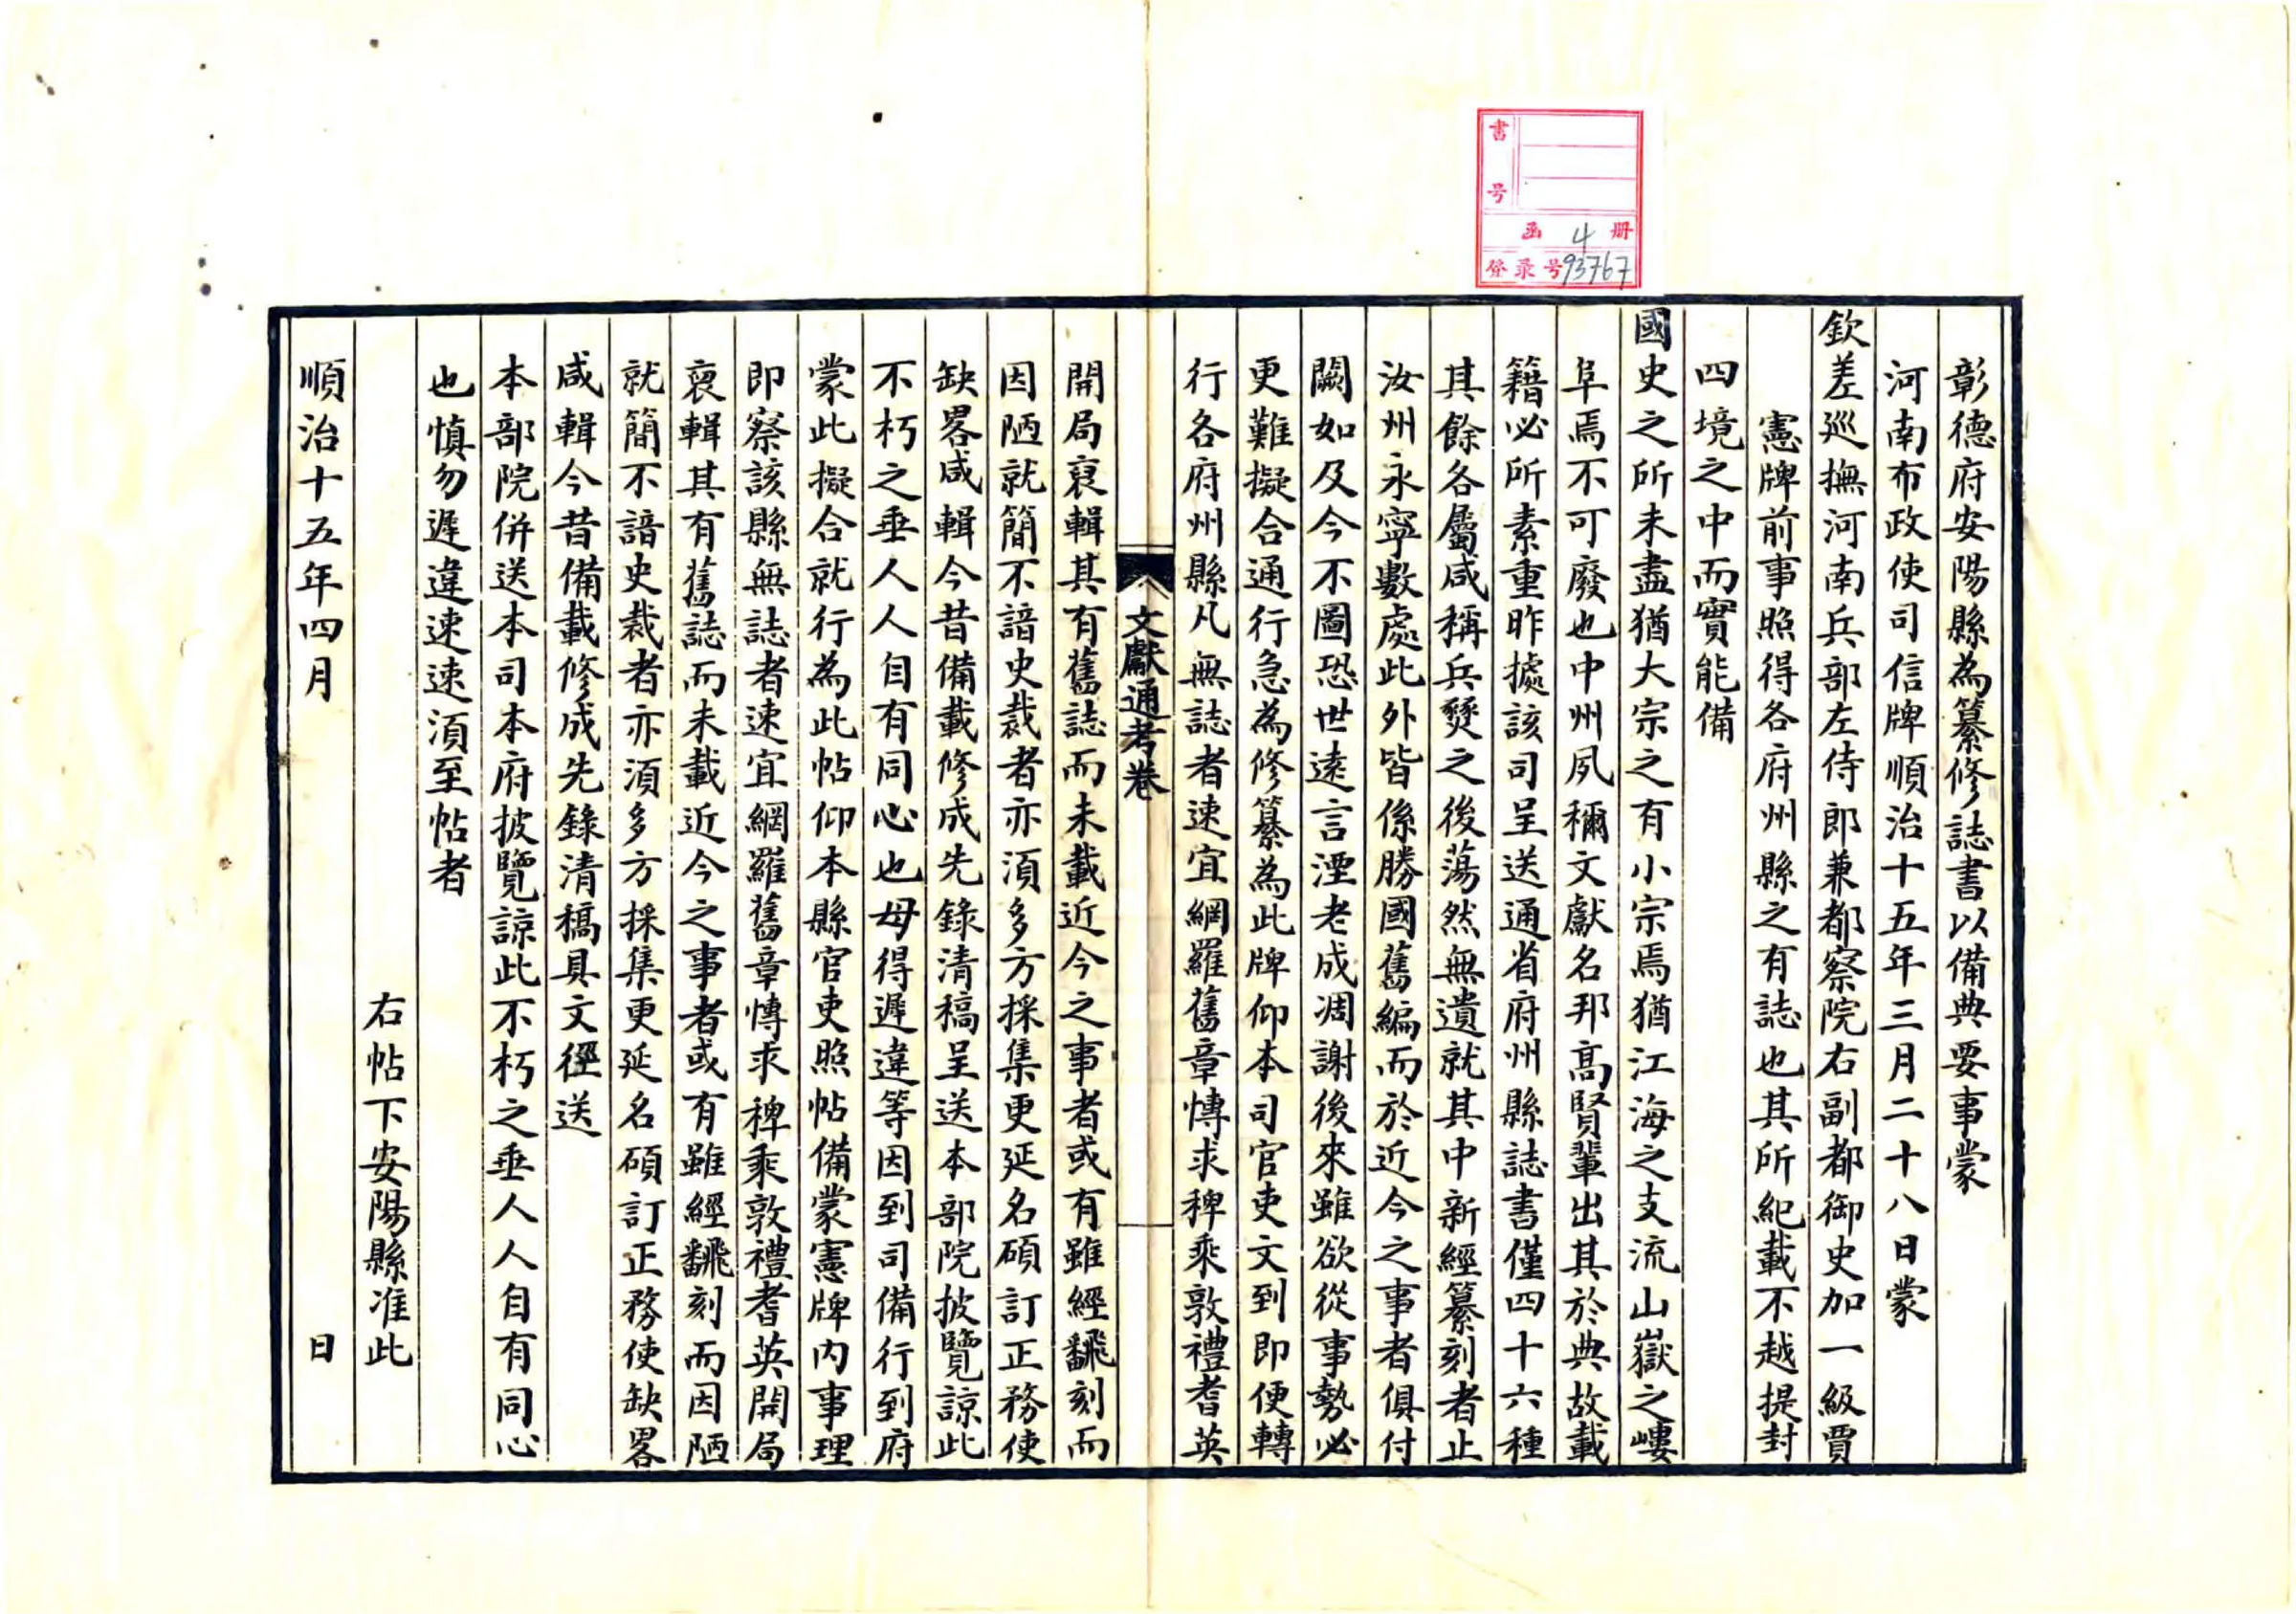 彰德府安陽縣為纂修誌書以備典要事蒙
河南布政使司信牌順治十五年三月二十八日蒙
欽差巡撫河南兵部左侍郎兼都察院右副都御史加一級賈
憲牌前事照得各府州縣之有誌也其所紀載不越提封
四境之中而實能備
國史之所未盡猶大宗之有小宗焉猶江海之支流山嶽之嶁
阜焉不可廢也中州夙稱文獻名邦髙賢輩出其於典故載
籍必所素重昨據該司呈送通省府州縣誌書僅四十六種
其餘各屬咸稱兵燹之後蕩然無遺就其中新經纂刻者止
汝州永寧數處此外皆係勝國舊編而於近今之事者俱付
闕如及今不圖恐世遠言湮老成凋謝後來雖欲從事勢必
更難擬合通行急為修纂為此牌仰本司官吏文到即便轉
行各府州縣凡無誌者速宜網羅舊章慱求稗乘敦禮耆英
文獻通考卷
開局裒輯其有舊誌而未載近今之事者或有雖經翻刻而
因陋就簡不諳史裁者亦湏多方採集更延名碩訂正務使
缺畧咸輯今昔備載修成先錄清稿呈送本部院披覽諒此
不朽之垂人人自有同心也毋得遲違等因到司備行到府
蒙此擬合就行為此帖仰本縣官吏照帖備蒙憲牌内事理
即察該縣無誌者速宜網羅舊章慱求稗乘敦禮耆英開局
裒輯其有舊誌而未載近今之事者或有雖經翻刻而因陋
就簡不諳史裁者亦湏多方採集更延名碩訂正務使缺畧
咸輯今昔備載修成先錄清稿具文徑送
本部院併送本司本府披覽諒此不朽之垂人人自有同心
也慎勿遲違速速湏至帖者
右帖下安陽縣准此
順治十五年四月 日
書号
函 4 册
登录号93767